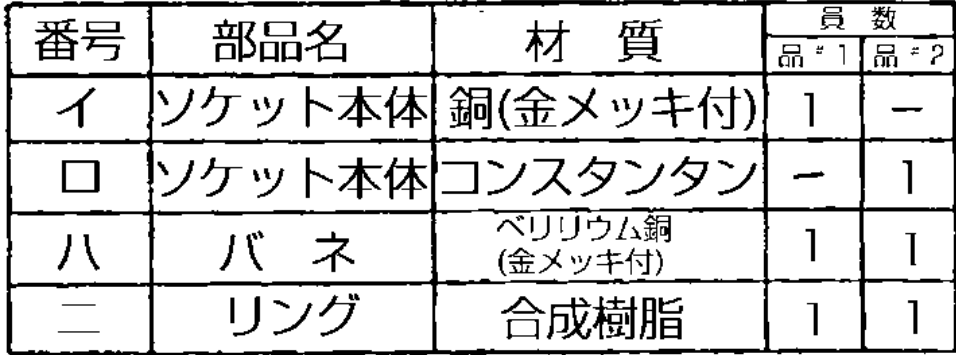 番号 部品名 材 質 員 数
品#1 品#2
イ ソケット本体 銅(金メッキ付) 1 ー
ロ ソケット本体 コンスタンタン ー 1
ハ バ ネ ベリリウム銅 1 1
(金メッキ付)
ニ リング 合成樹脂 1 1